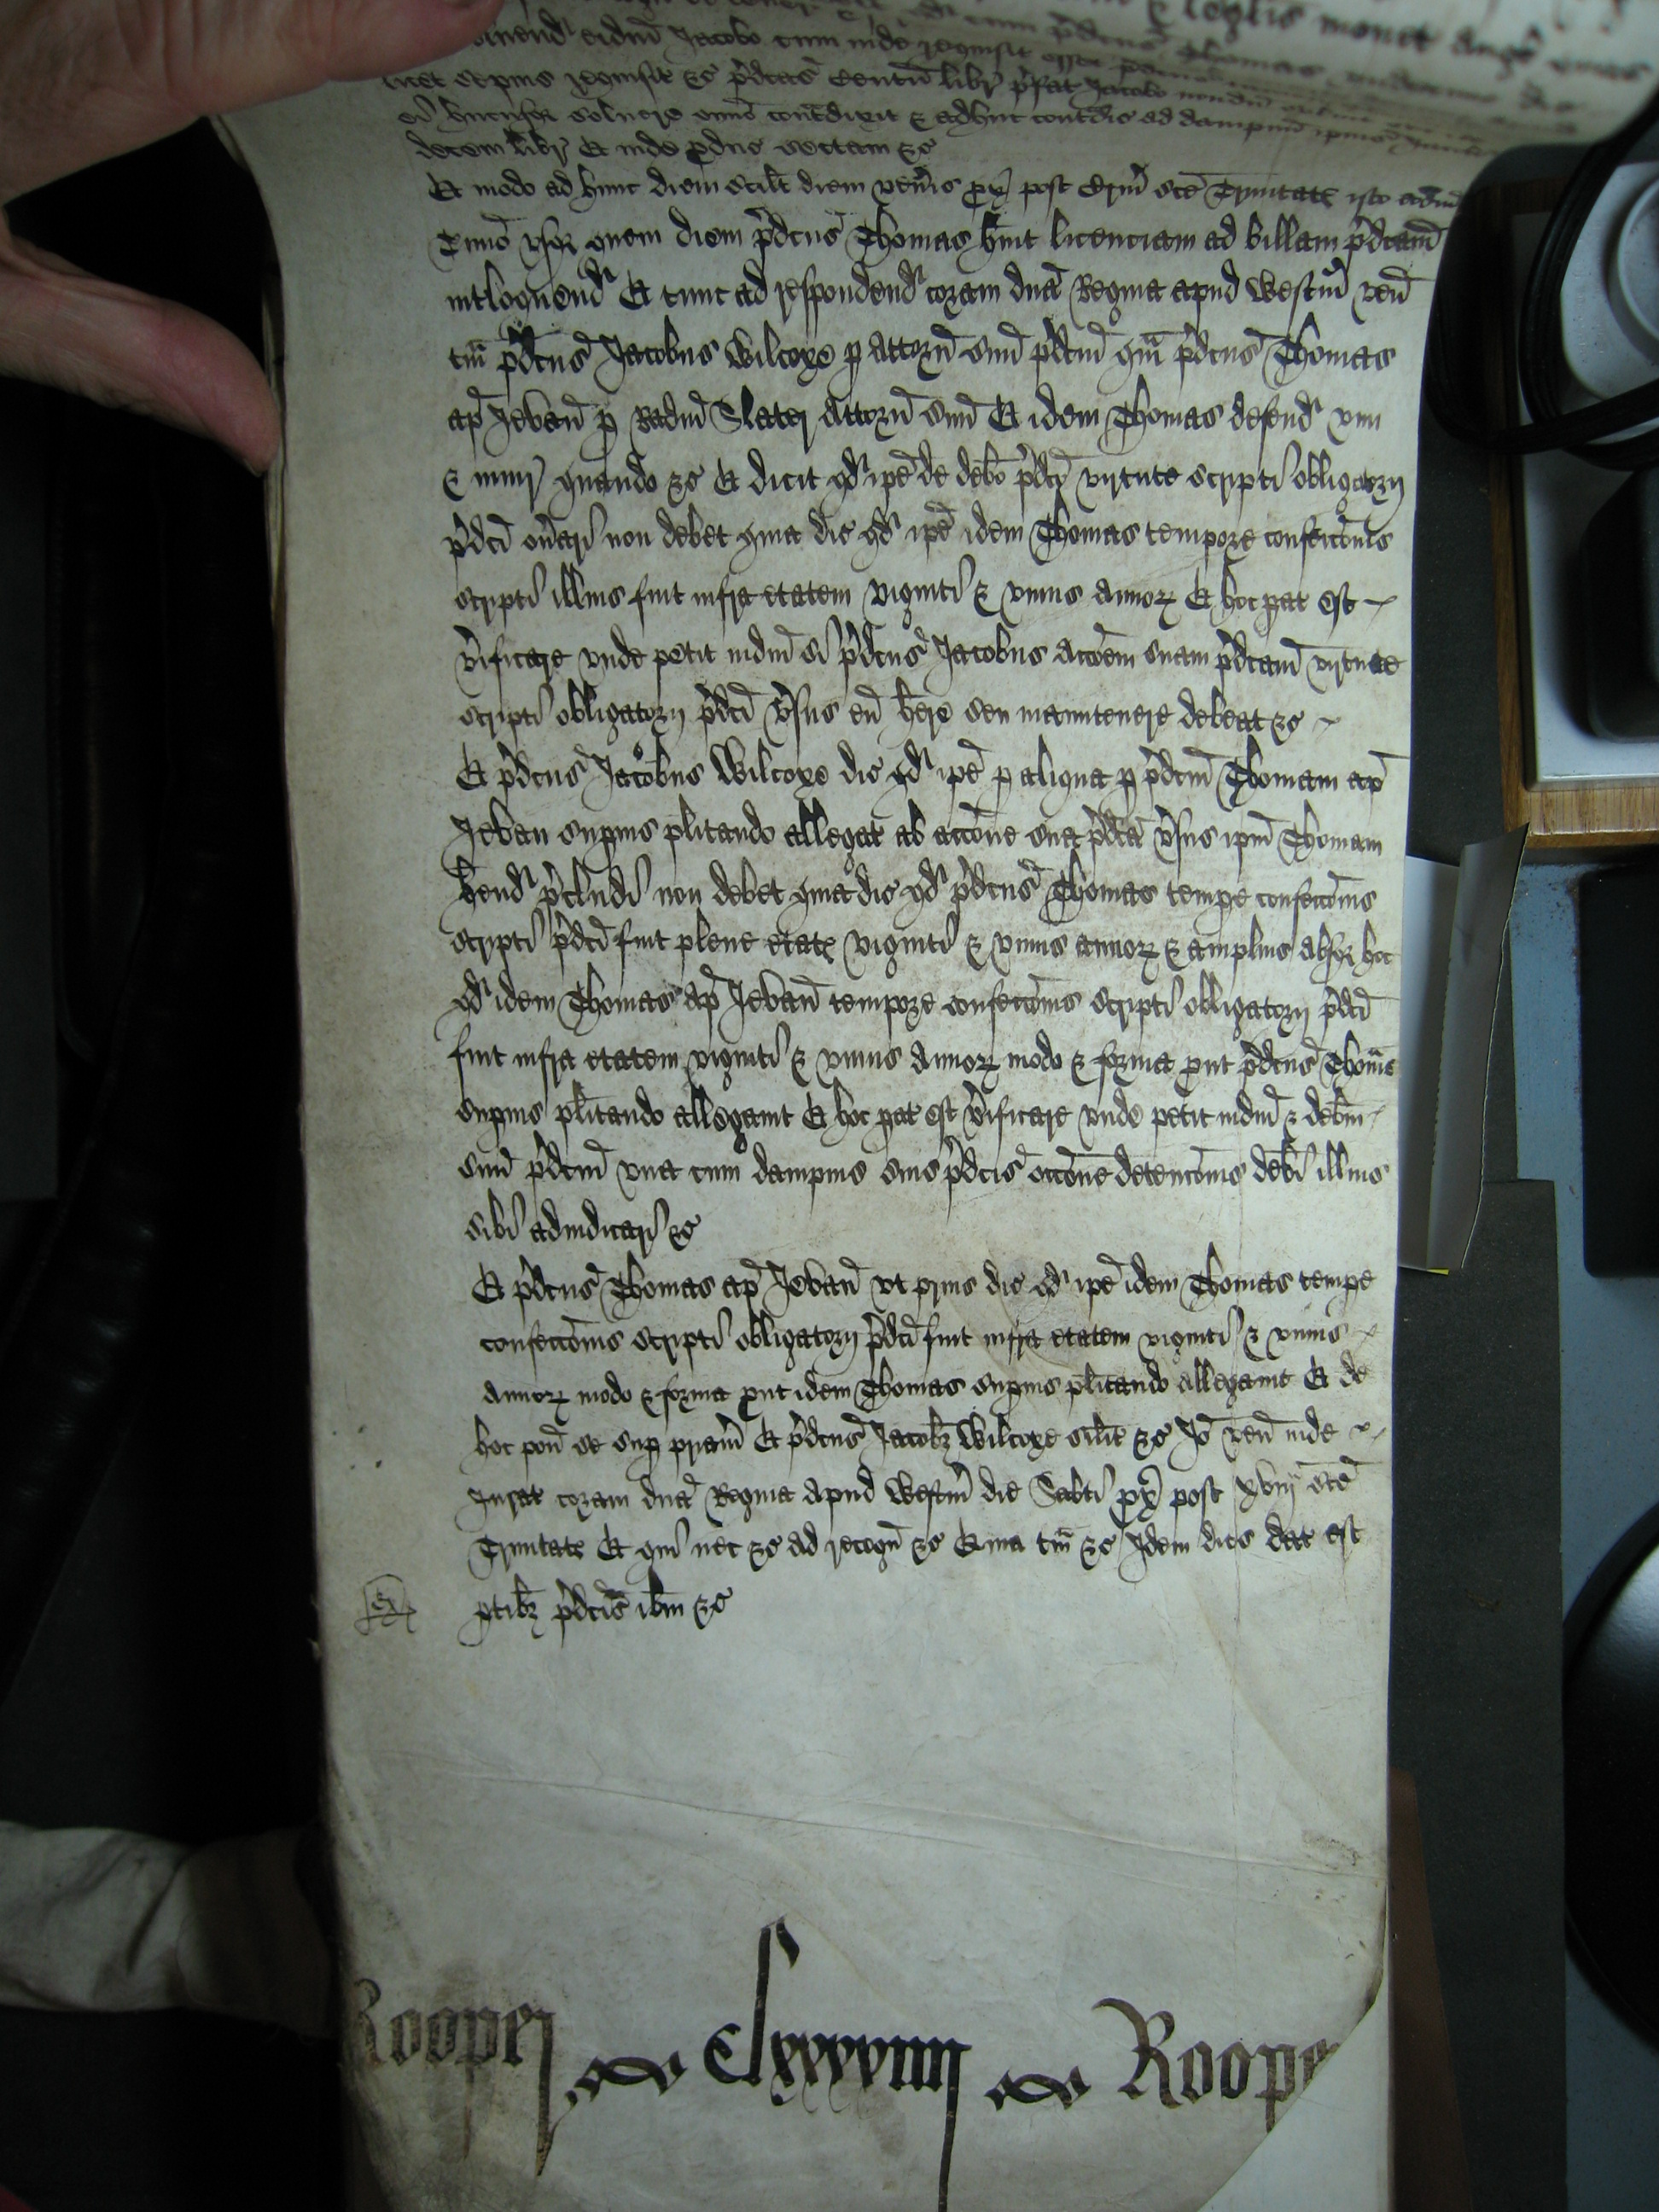 & legalis monet Angl
solvend eidm Jacobo cum inde requisit esset pdcus Thomas
licet sepius requisit &c pdcas Centu libr pfat Jacobo nondu
ei hucusq solvere omio contdixit & adhuc contdic ad dampnu ipius
decem libr Et inde pduc sectam &c
Et modo ad hunc diem scilt diem venis px post Crm sce Trinitatis isto eodm
Tmio usq quem diem pdcus Thomas huit licenciam ad billam pdcam
intloquend Et tunc ad respondend coram dna Regina apud Westm ven
tm pdcus Jacobus Wilcoxe p Attorn suu pdcm qm pdcus Thomas
ap Jevan p Radm Slater Attorn suu Et idem Thomas defend vim
& iniur quando &c Et dicit qd ipe de debo pdco virtute scripti obligatorii
pdci onari non debet quia dic qd ipe idem Thomas tempore confeccois
scripti illius fuit infra etatem viginti & unius annor Et hoc pat est
vificare unde petit iudm si pdcus Jacobus accoem suam pdcam virtute
scripti obligatorii pdci vsus eu here seu manutenere debeat &c
Et pdcus Jacobus Wilcoxe dic qd ipe p aliqua p pdcm Thomam ap
Jevan supius plitando allegat ab accone sua pdca vsus ipm Thomam
hend pcludi non debet quia dic qd pdcus Thomas tempe confeccois
scripti pdci fuit plene etatis viginti & unius annor & amplius absq hoc
qd idem Thomas ap Jevan tempore confeccois scripti obligatorii pdci
fuit infra etatem viginti & unius annor modo & forma put pdcus Thomas
supius plitando allegavit Et hoc pat est vificare unde petit iudm & debm
suu pdcm una cum dampnis suis pdcis occone detencois debi illius
sibi adiudicari &c
Et pdcus Thomas ap Jevan ut prius dic qd ipe idem Thomas tempe
confeccois scripti obligatorii pdci fuit infra etatem viginti & unius
annor modo & forma put idem Thomas supius plitando allegavit Et de
hoc pon se sup priam Et pdcus Jacobz Wilcoxe silit &c Jo ven inde
Jurat coram dna Regina apud Westm die Sabti px post xviij sce
Trinitatis Et qui nec &c ad recogn &c Quia tm &c Idem dies dat est
ptibz pdcis ibm &c
Rooper clxxxxviiij Roope